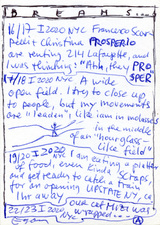 DREAMS...
16/17 I 2020 NYC Francesco Scar
pedit Christina PROSPERIO
are renting 214 Lafayette, and
was thinking: "Ahh, they PRO
SPER
17/18 I 2020 NYC A wide
open field. I try to close up
to people, but my movements
are "leaden", like iam in molasses
in the middle
of an "hourglass
like field"
19/20 I 2020 NYC I am eating a platter
of food, even kinda SCRAPS,
and get ready to catch a train
for an opening UPSTATE NY, ca
1hr away
22/23 I 2020 NYC wrapped...